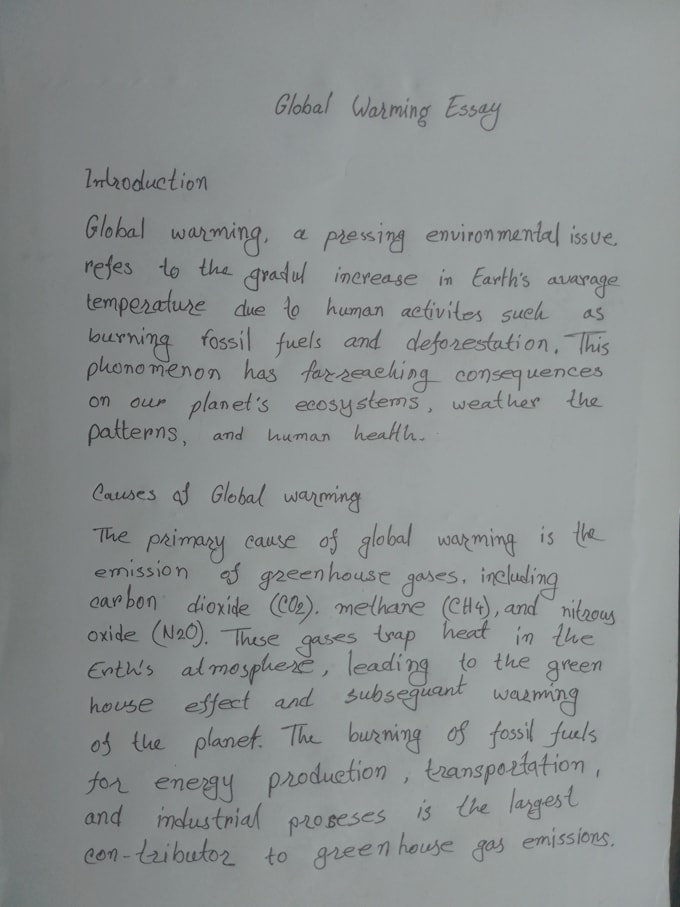 Global Warming Essay
Introduction
Global warming, a pressing environmental issue.
refes to the gradul increase in Earth's avarage
temperature due to human activites such as
burning fossil fuels and deforestation. This
phonomenon has farreaching consequences
on our planet's ecosystems, weather the
patterns, and human health.
Causes of Global warming
The primary cause of global warming is the
emission of greenhouse gases. including
carbon dioxide (CO2). methane (CH4), and nitrous
oxide (N2O). These gases trap heat in the
Erth's atmosphere, leading to the green
house effect and subsequant warming
of the planet. The burning of fossil fuels
for energy production, transportation,
and industrial proseses is the largest
con-tributor to greenhouse gas emissions.